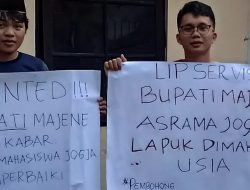 NTED!!!
ATI MAJENE
KABAR
MAHASISWA JOGJA
PERBAIKI
LIP SERVIC
BUPATI MAJ
ASRAMA JOG
LAPUK DIMAK
USIA
#PEMBOHONG